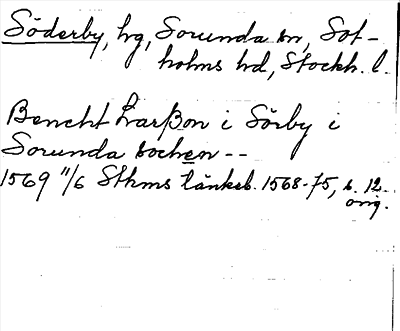 Söderby, hg, Sorunda sn, Sot-
holms hd, Stockh. l.
Bencht Larßon i Sörby i
Sorunda sochen --
1569 11/6 Sthms tänkeb. 1568-75, s. 12
orig.